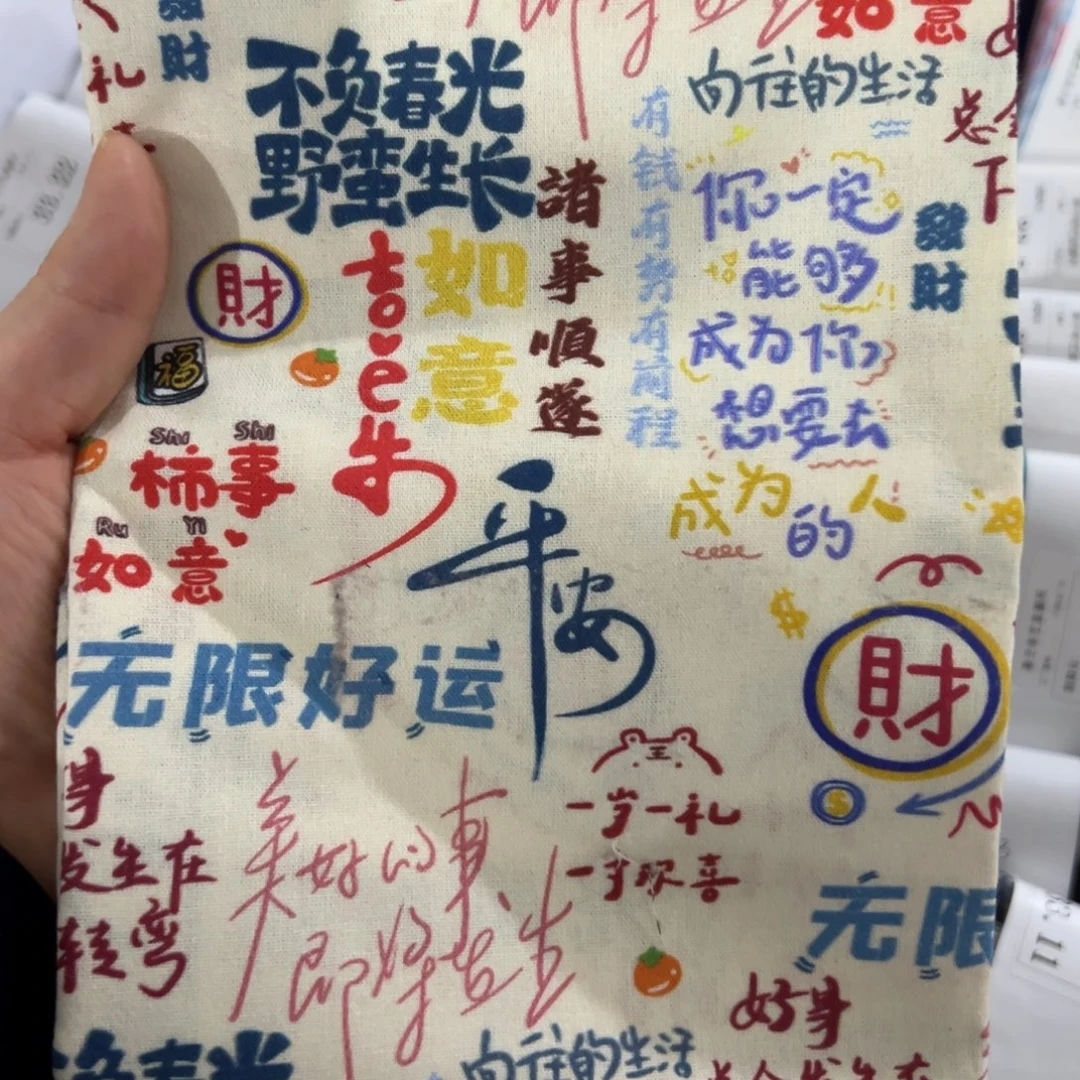 發財
礼
不负春光
野蛮生长
如意
向往的生活
有钱有势有前程
總会
下
諸事順遂
你一定
能够
成为你
想要去
成为的人
發財
財
福
吉
如意
Shi Shi
柿事
Ru Yi
如意
平安
$
財
无限好运
身
发生在
转弯
美好的事
即将发生
王
一岁一礼
一岁欢喜
$
无限
好事
11
向往的生活